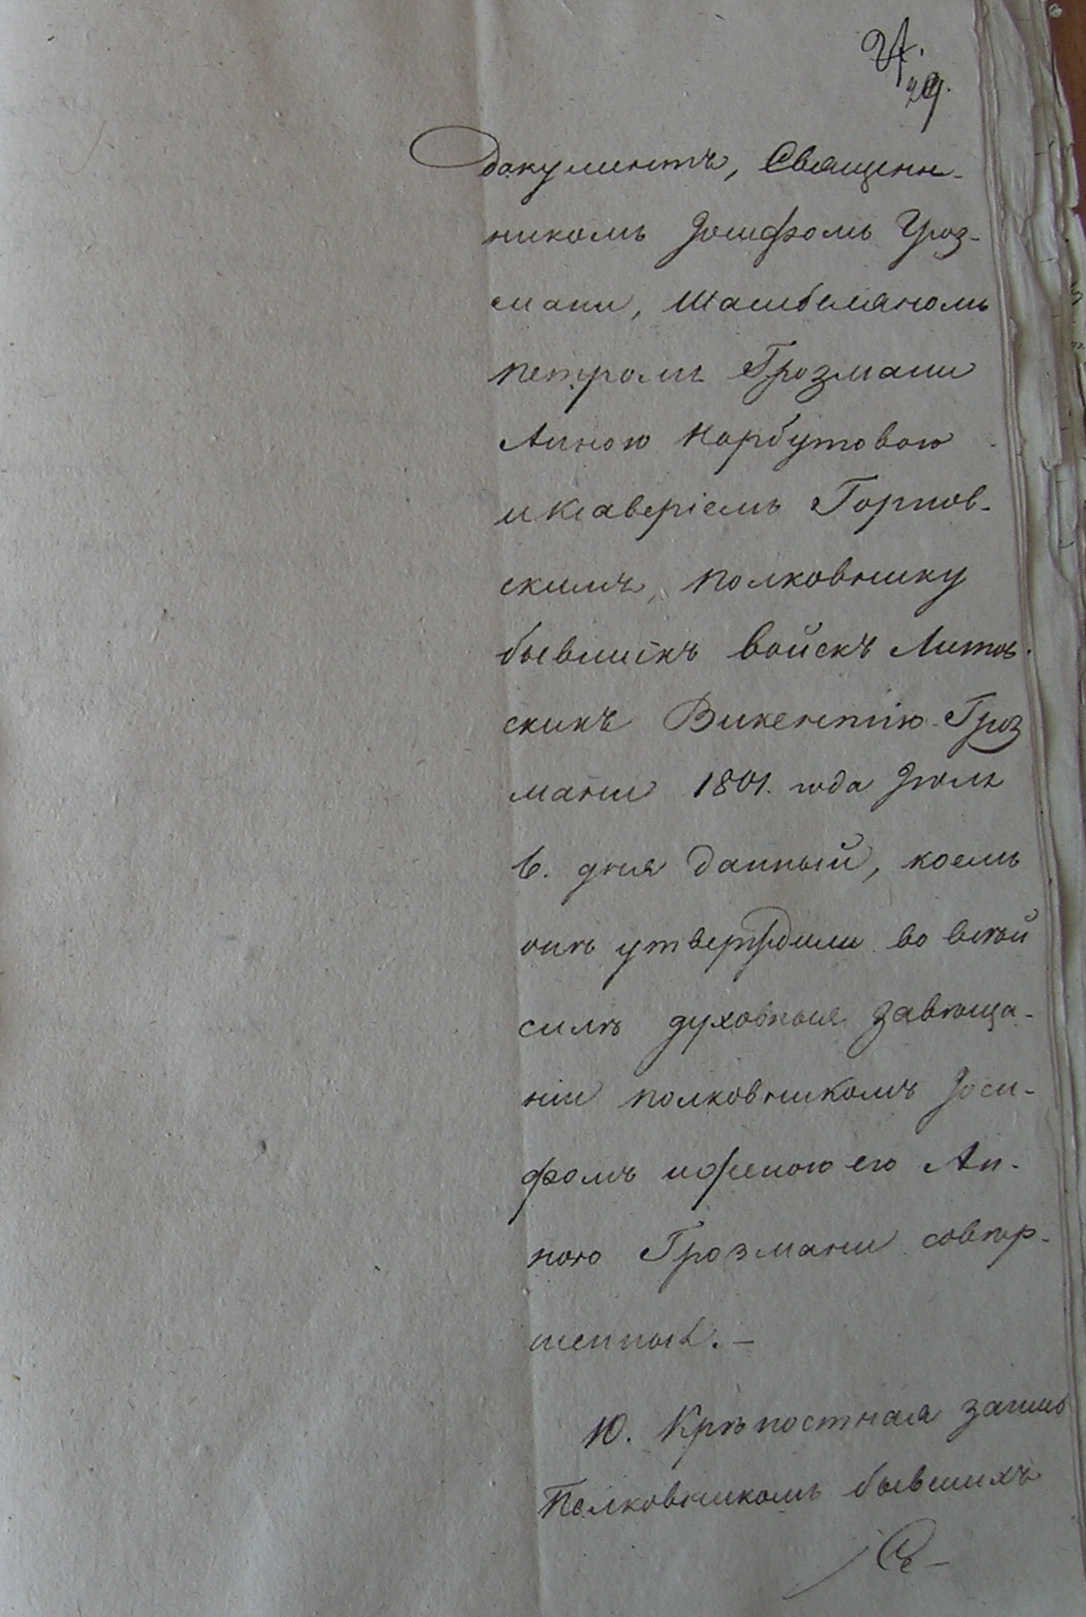 29.
документъ, Священ-
никомъ Іосифомъ Гроз-
мани, Шамбеляномъ
Петромъ Грозмани
Анною Нарбутовою
и Ксаверіемъ Горнов-
скимъ, полковнику
бывшихъ войскъ Литов-
скихъ Викентію Гроз
мани 1801. года Іюля
6. дня данный, коемъ
они утвердили во всей
силѣ духовныя завѣща-
ніи полковникомъ Іоси-
фомъ и женою его Ан-
ною Грозмани совер-
шенныя. —
10. Крѣпостная запись
Полковникомъ бывшихъ